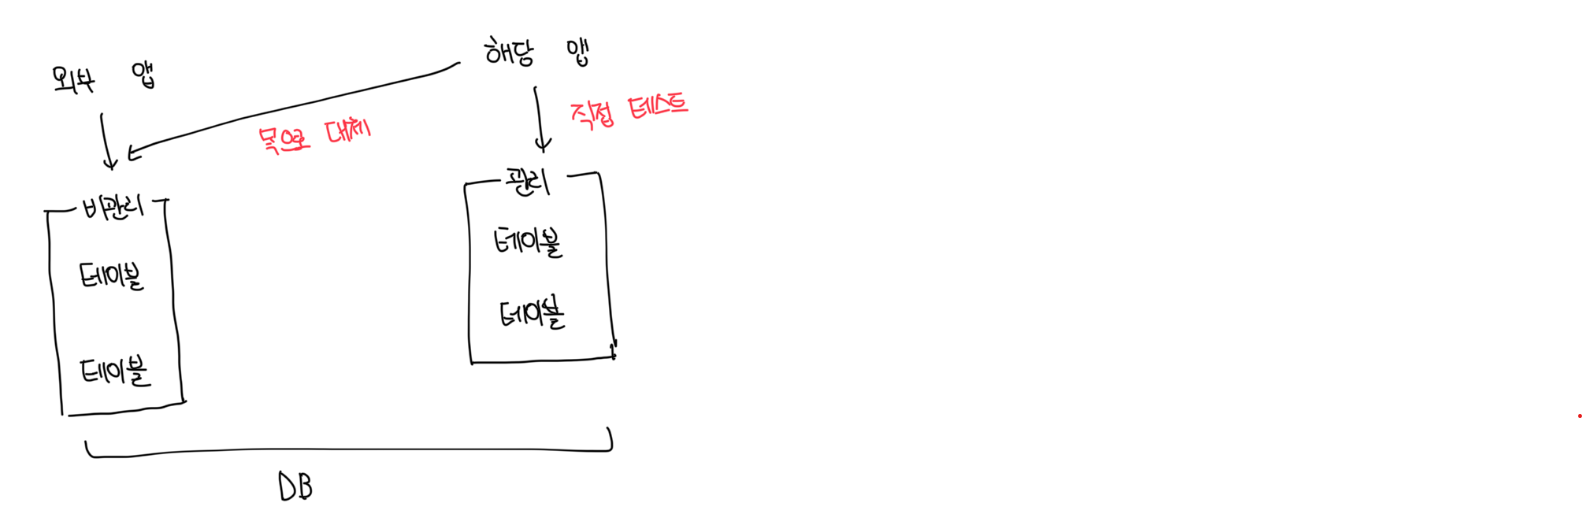 외부 앱
해당 앱
목으로 대체
직접 테스트
비관리
테이블
테이블
관리
테이블
테이블
DB